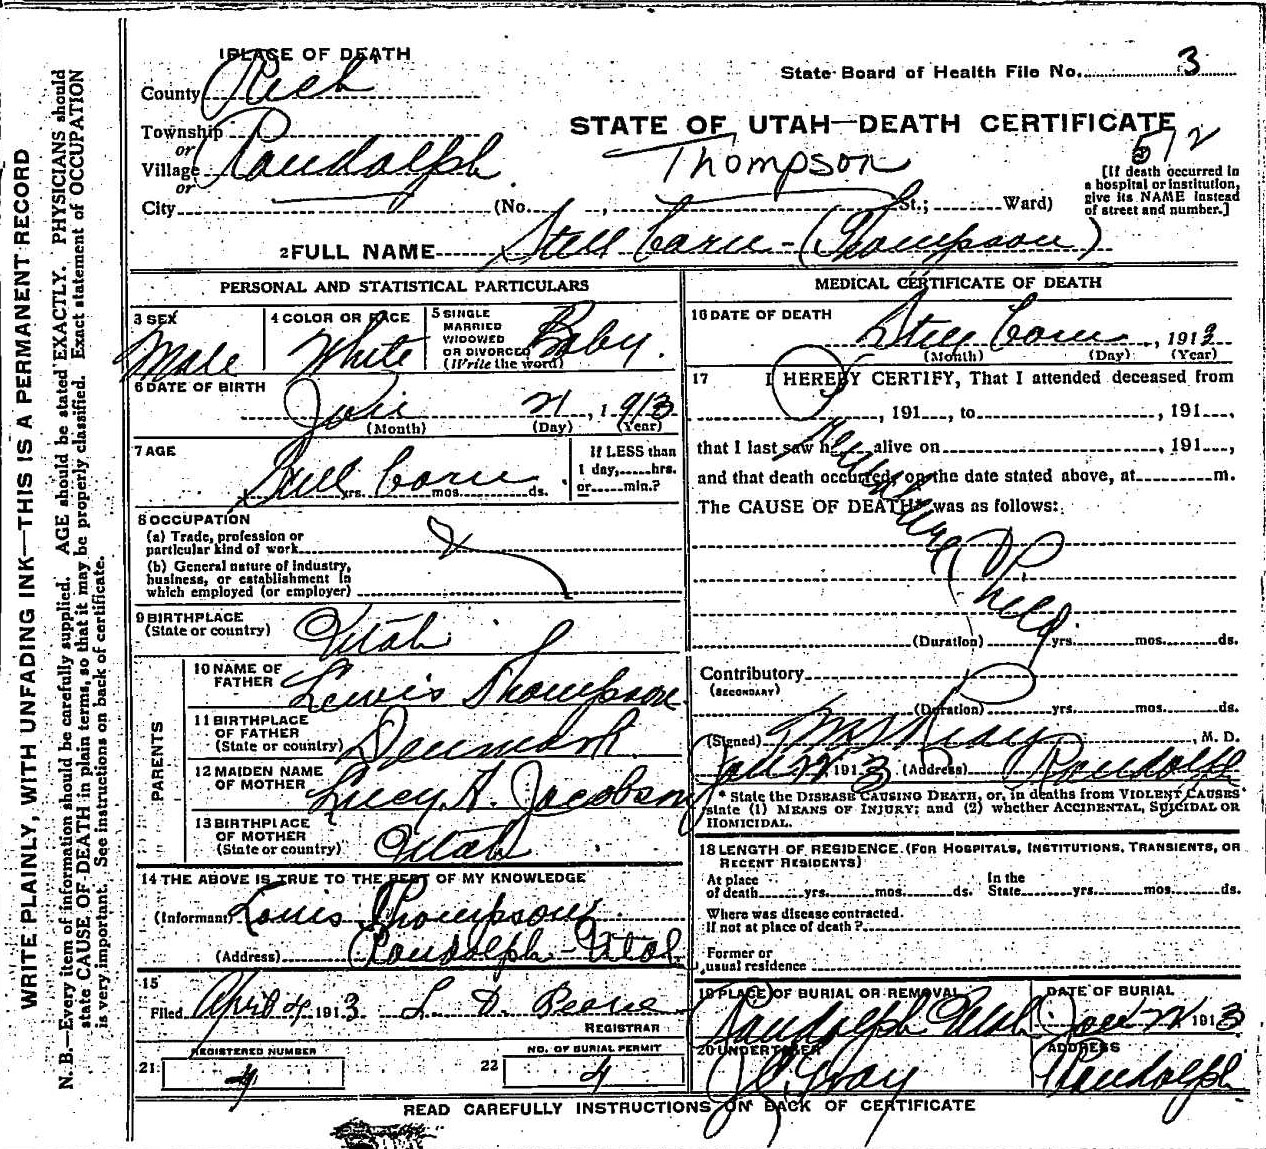 WRITE PLAINLY, WITH UNFADING INK—THIS IS A PERMANENT RECORD
N. B.—Every item of information should be carefully supplied. AGE should be stated EXACTLY. PHYSICIANS should
state CAUSE OF DEATH in plain terms, so that it may be properly classified. Exact statement of OCCUPATION
is very important. See instructions on back of certificate.
1 PLACE OF DEATH
County Rich
Township
or
Village Randolph
or
City
State Board of Health File No. 3
STATE OF UTAH—DEATH CERTIFICATE
572
Thompson
[If death occurred in
a hospital or institution,
give its NAME instead
of street and number.]
(No. , St.; Ward)
2 FULL NAME Still Born - (Thompson)
PERSONAL AND STATISTICAL PARTICULARS
3 SEX
Male
4 COLOR OR RACE
White
5 SINGLE
MARRIED
WIDOWED
OR DIVORCED
(Write the word)
Baby.
6 DATE OF BIRTH
21, 1913
(Month) (Day) (Year)
7 AGE
Still Born
yrs. mos. ds.
If LESS than
1 day, hrs.
or min.?
8 OCCUPATION
(a) Trade, profession or
particular kind of work
(b) General nature of industry,
business, or establishment in
which employed (or employer)
9 BIRTHPLACE
(State or country) Utah
PARENTS
10 NAME OF
FATHER Lewis Thompson
11 BIRTHPLACE
OF FATHER
(State or country) Denmark
12 MAIDEN NAME
OF MOTHER Lucy H. Jacobson
13 BIRTHPLACE
OF MOTHER
(State or country) Utah
14 THE ABOVE IS TRUE TO THE BEST OF MY KNOWLEDGE
(Informant Louis Thompson
(Address) Randolph - Utah
15
Filed April 4 1913 L. D. Pearce
REGISTRAR
21 REGISTERED NUMBER
4
22 NO. OF BURIAL PERMIT
4
MEDICAL CERTIFICATE OF DEATH
16 DATE OF DEATH
Still Born, 1913
(Month) (Day) (Year)
17 I HEREBY CERTIFY, That I attended deceased from
, 191 , to , 191 ,
that I last saw h alive on , 191 ,
and that death occurred, on the date stated above, at m.
The CAUSE OF DEATH* was as follows:
(Duration) yrs. mos. ds.
Contributory
(SECONDARY)
(Duration) yrs. mos. ds.
(Signed) , M. D.
Jan 22 1913 (Address) Randolph
* State the DISEASE CAUSING DEATH, or, in deaths from VIOLENT CAUSES
state (1) MEANS OF INJURY; and (2) whether ACCIDENTAL, SUICIDAL OR
HOMICIDAL.
18 LENGTH OF RESIDENCE (FOR HOSPITALS, INSTITUTIONS, TRANSIENTS, OR
RECENT RESIDENTS)
At place
of death yrs. mos. ds.
In the
State yrs. mos. ds.
Where was disease contracted.
If not at place of death?
Former or
usual residence
19 PLACE OF BURIAL OR REMOVAL
Randolph Utah
DATE OF BURIAL
Jan 22 1913
20 UNDERTAKER
Gray
ADDRESS
Randolph
READ CAREFULLY INSTRUCTIONS ON BACK OF CERTIFICATE